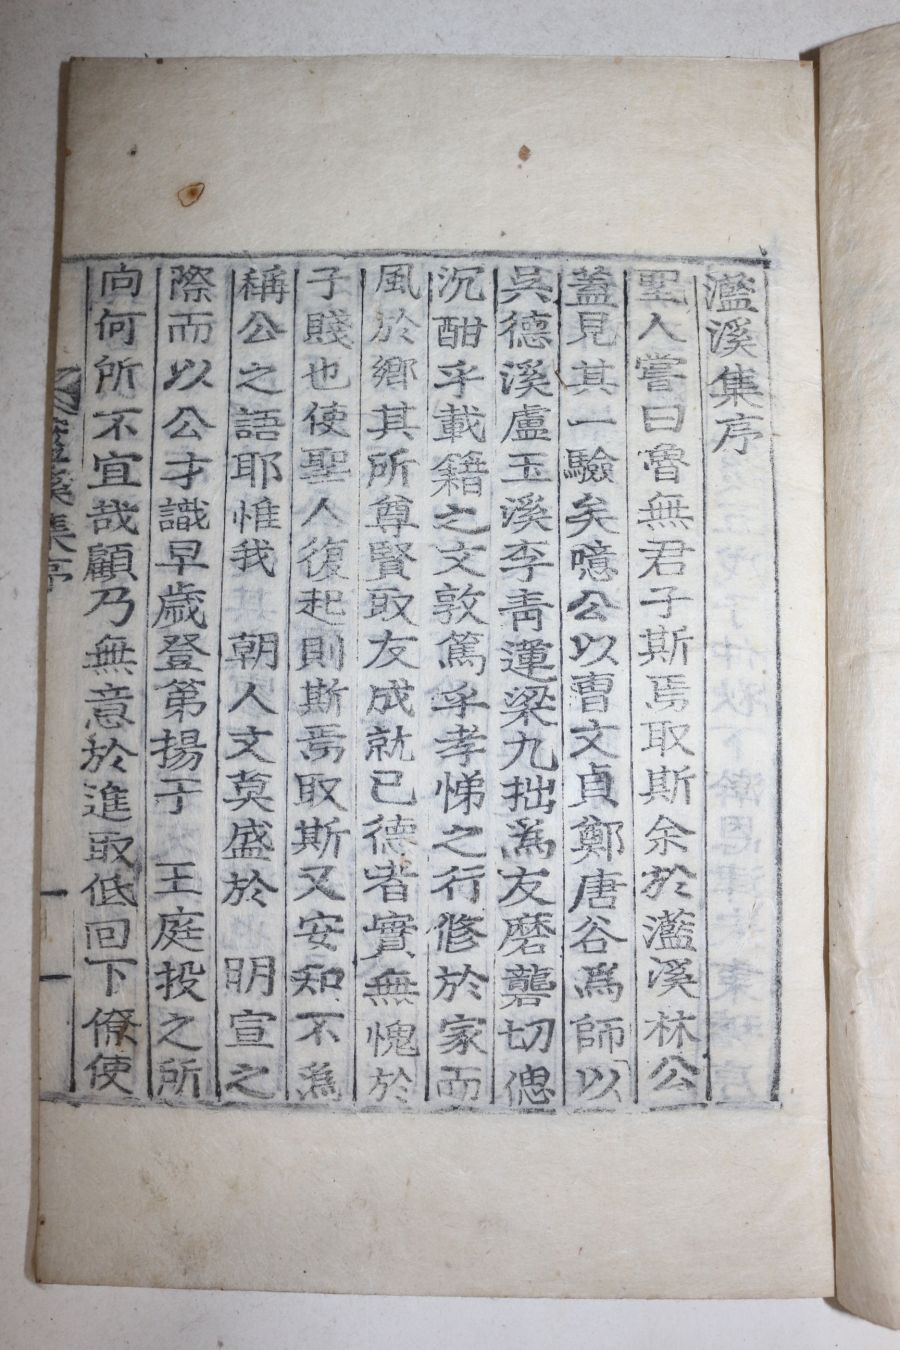 灆溪集序
聖人嘗曰魯無君子斯焉取斯余於灆溪林公
蓋見其一驗矣噫公以曺文貞鄭唐谷爲師以
吳德溪盧玉溪李靑蓮梁九拙爲友磨礱切偲
沉酣乎載籍之文敦篤乎孝悌之行修於家而
風於鄕其所尊賢取友成就已德者實無愧於
子賤也使聖人復起則斯焉取斯又安知不爲
稱公之語耶惟我 朝人文莫盛於 明宣之
際而以公才識早歲登第揚于 王庭投之所
向何所不宜哉顧乃無意於進取低回下僚使
灆溪集序
一